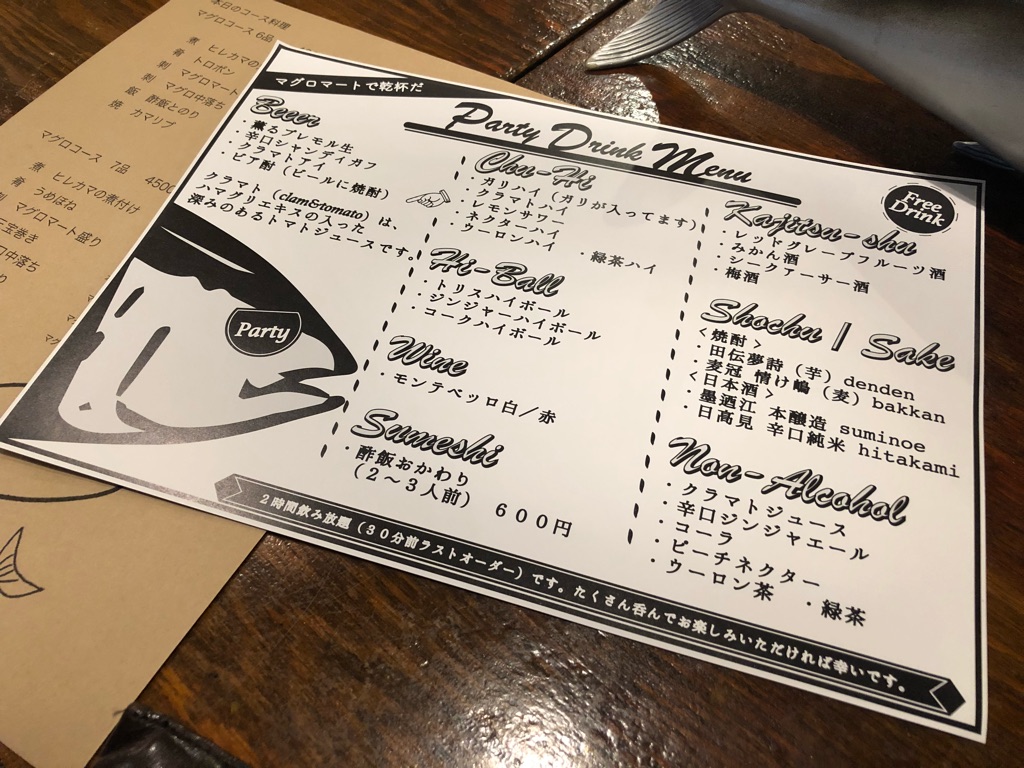 本日のコース料理
マグロコース 6品
煮 ヒレカマの
肴 トロポン
刺 マグロマート
刺 マグロ中落ち
飯 酢飯とのり
焼 カマリブ
マグロコース 7品 4500
煮 ヒレカマの煮付け
肴 うめぼね
刺 マグロマート盛り
玉巻き
中落ち
マグロマートで乾杯だ
Party Drink Menu
Free
Drink
Beeer
・薫るプレモル生
・辛口シャンディガフ
・クラマトアイ
・ビア酎（ビールに焼酎）
クラマト（clam&tomato）は、
ハマグリエキスの入った
深みのあるトマトジュースです。
Party
Chu-Hi
・ガリハイ（ガリが入ってます）
・クラマトハイ
・レモンサワー
・ネクターハイ
・ウーロンハイ ・緑茶ハイ
Hi-Ball
・トリスハイボール
・ジンジャーハイボール
・コークハイボール
Wine
・モンテベッロ白／赤
Sumeshi
・酢飯おかわり
（２～３人前） ６００円
Kajitsu-shu
・レッドグレープフルーツ酒
・みかん酒
・シークアーサー酒
・梅酒
Shochu / Sake
<焼酎>
・田伝夢詩（芋）denden
・麦冠 情け嶋（麦）bakkan
<日本酒>
・墨廼江 本醸造 suminoe
・日高見 辛口純米 hitakami
Non-Alcohol
・クラマトジュース
・辛口ジンジャエール
・コーラ
・ピーチネクター
・ウーロン茶 ・緑茶
２時間飲み放題（３０分前ラストオーダー）です。たくさん呑んでお楽しみいただければ幸いです。